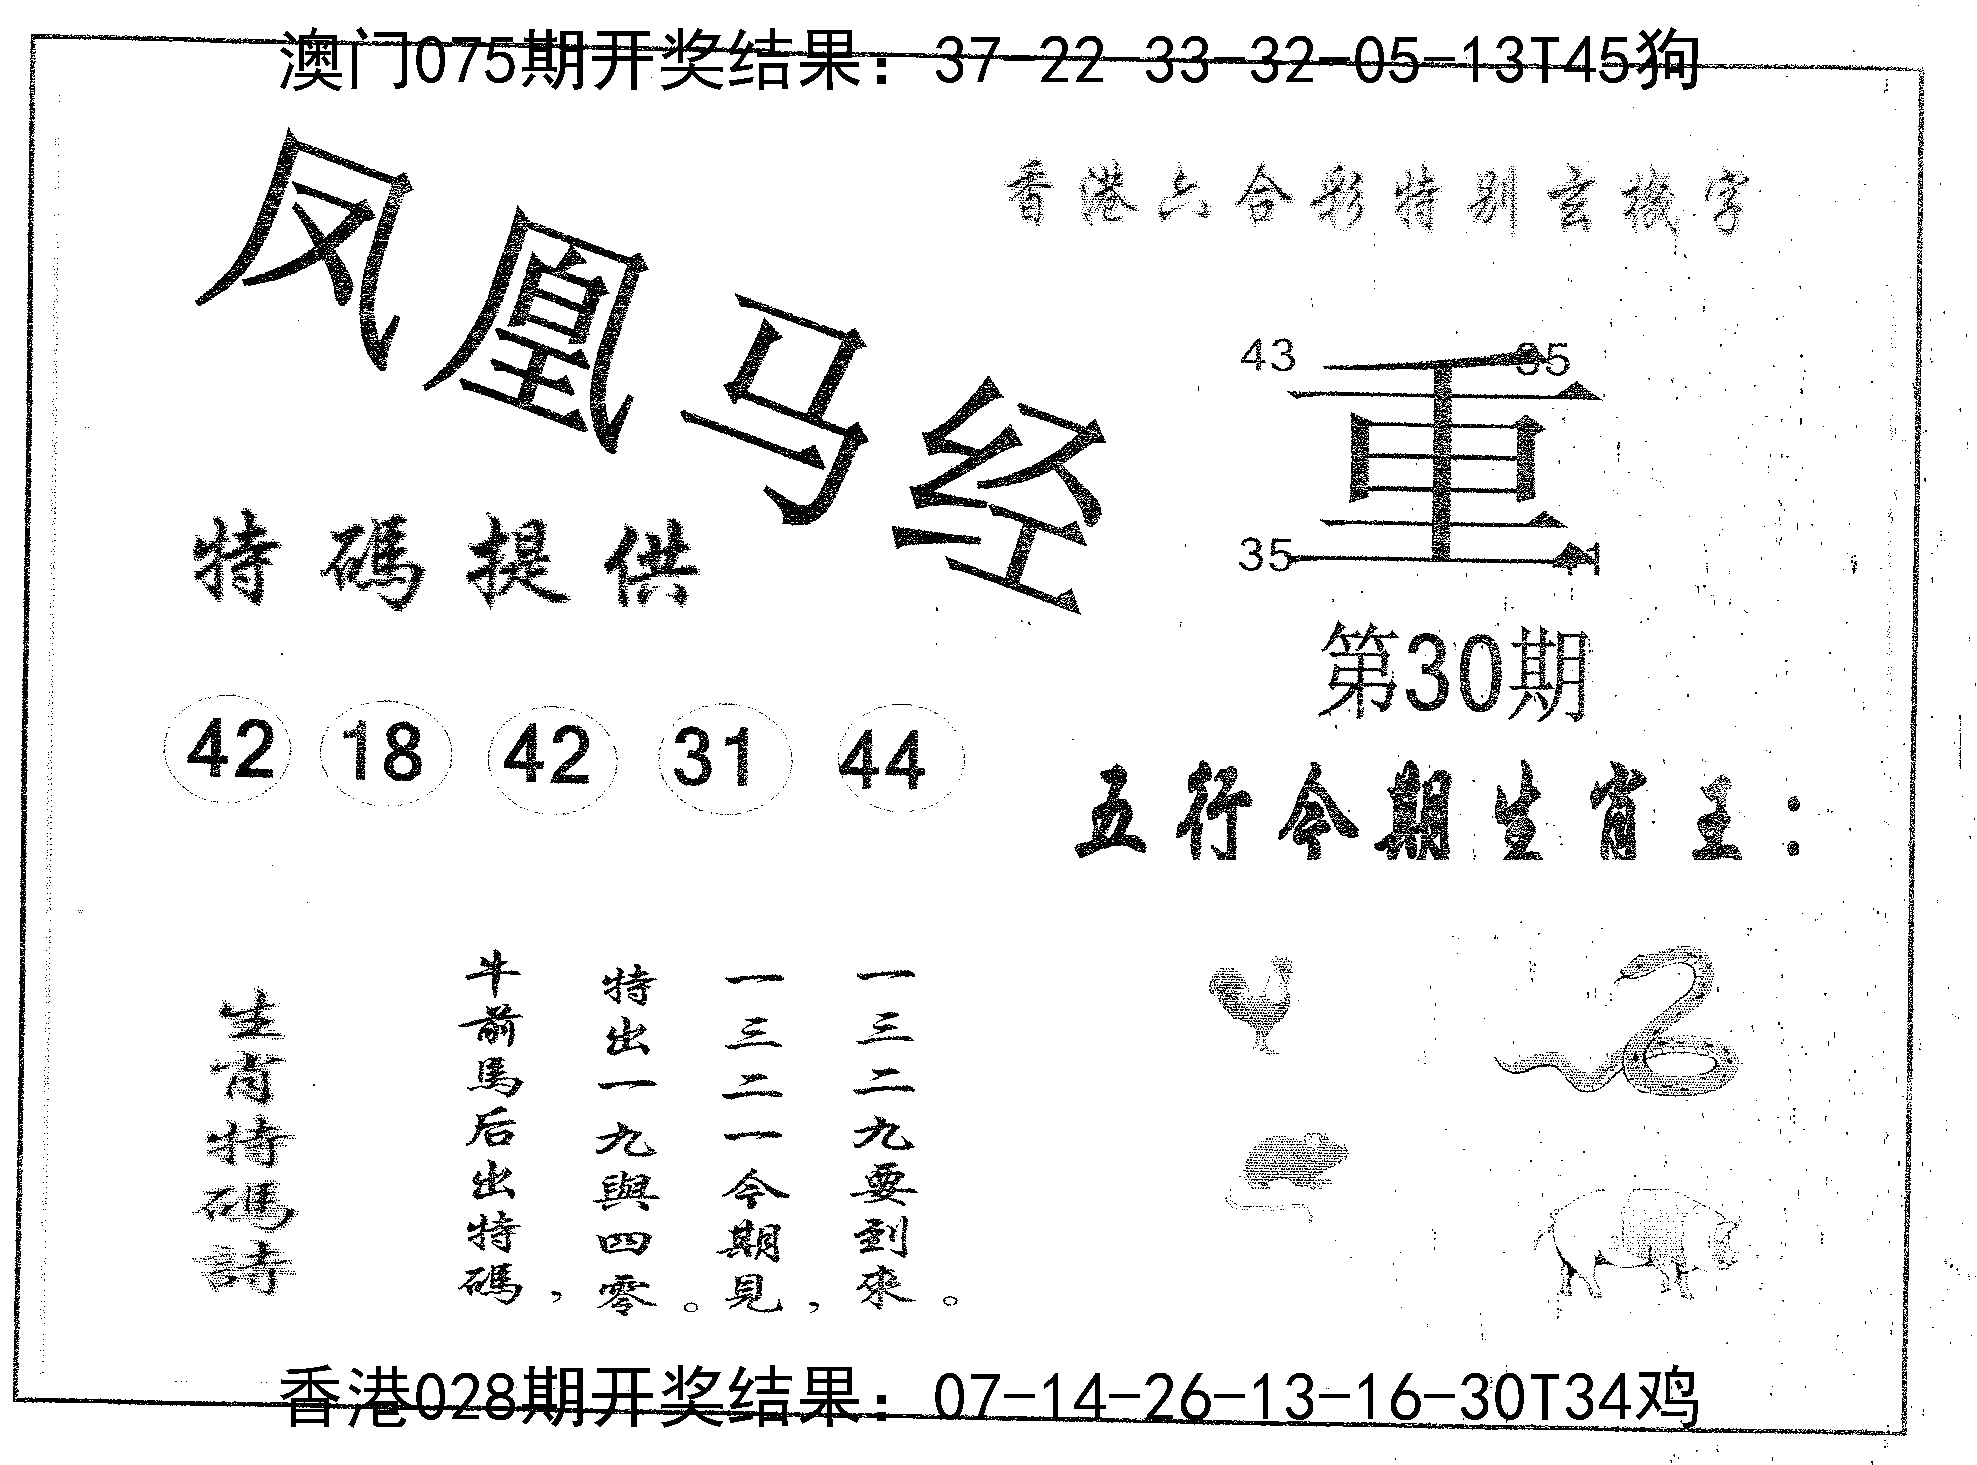 澳门075期开奖结果：37-22 33-32-05-13T45狗
凤凰马经
香港六合彩特别玄機字
43
重
35
特碼提供
第30期
42 18 42 31 44
五行今期生肖王：
生肖特碼詩
牛前馬后出特碼，
特出一九與四零。
一三二一今期見，
一三二九要到來。
香港028期开奖结果：07-14-26-13-16-30T34鸡